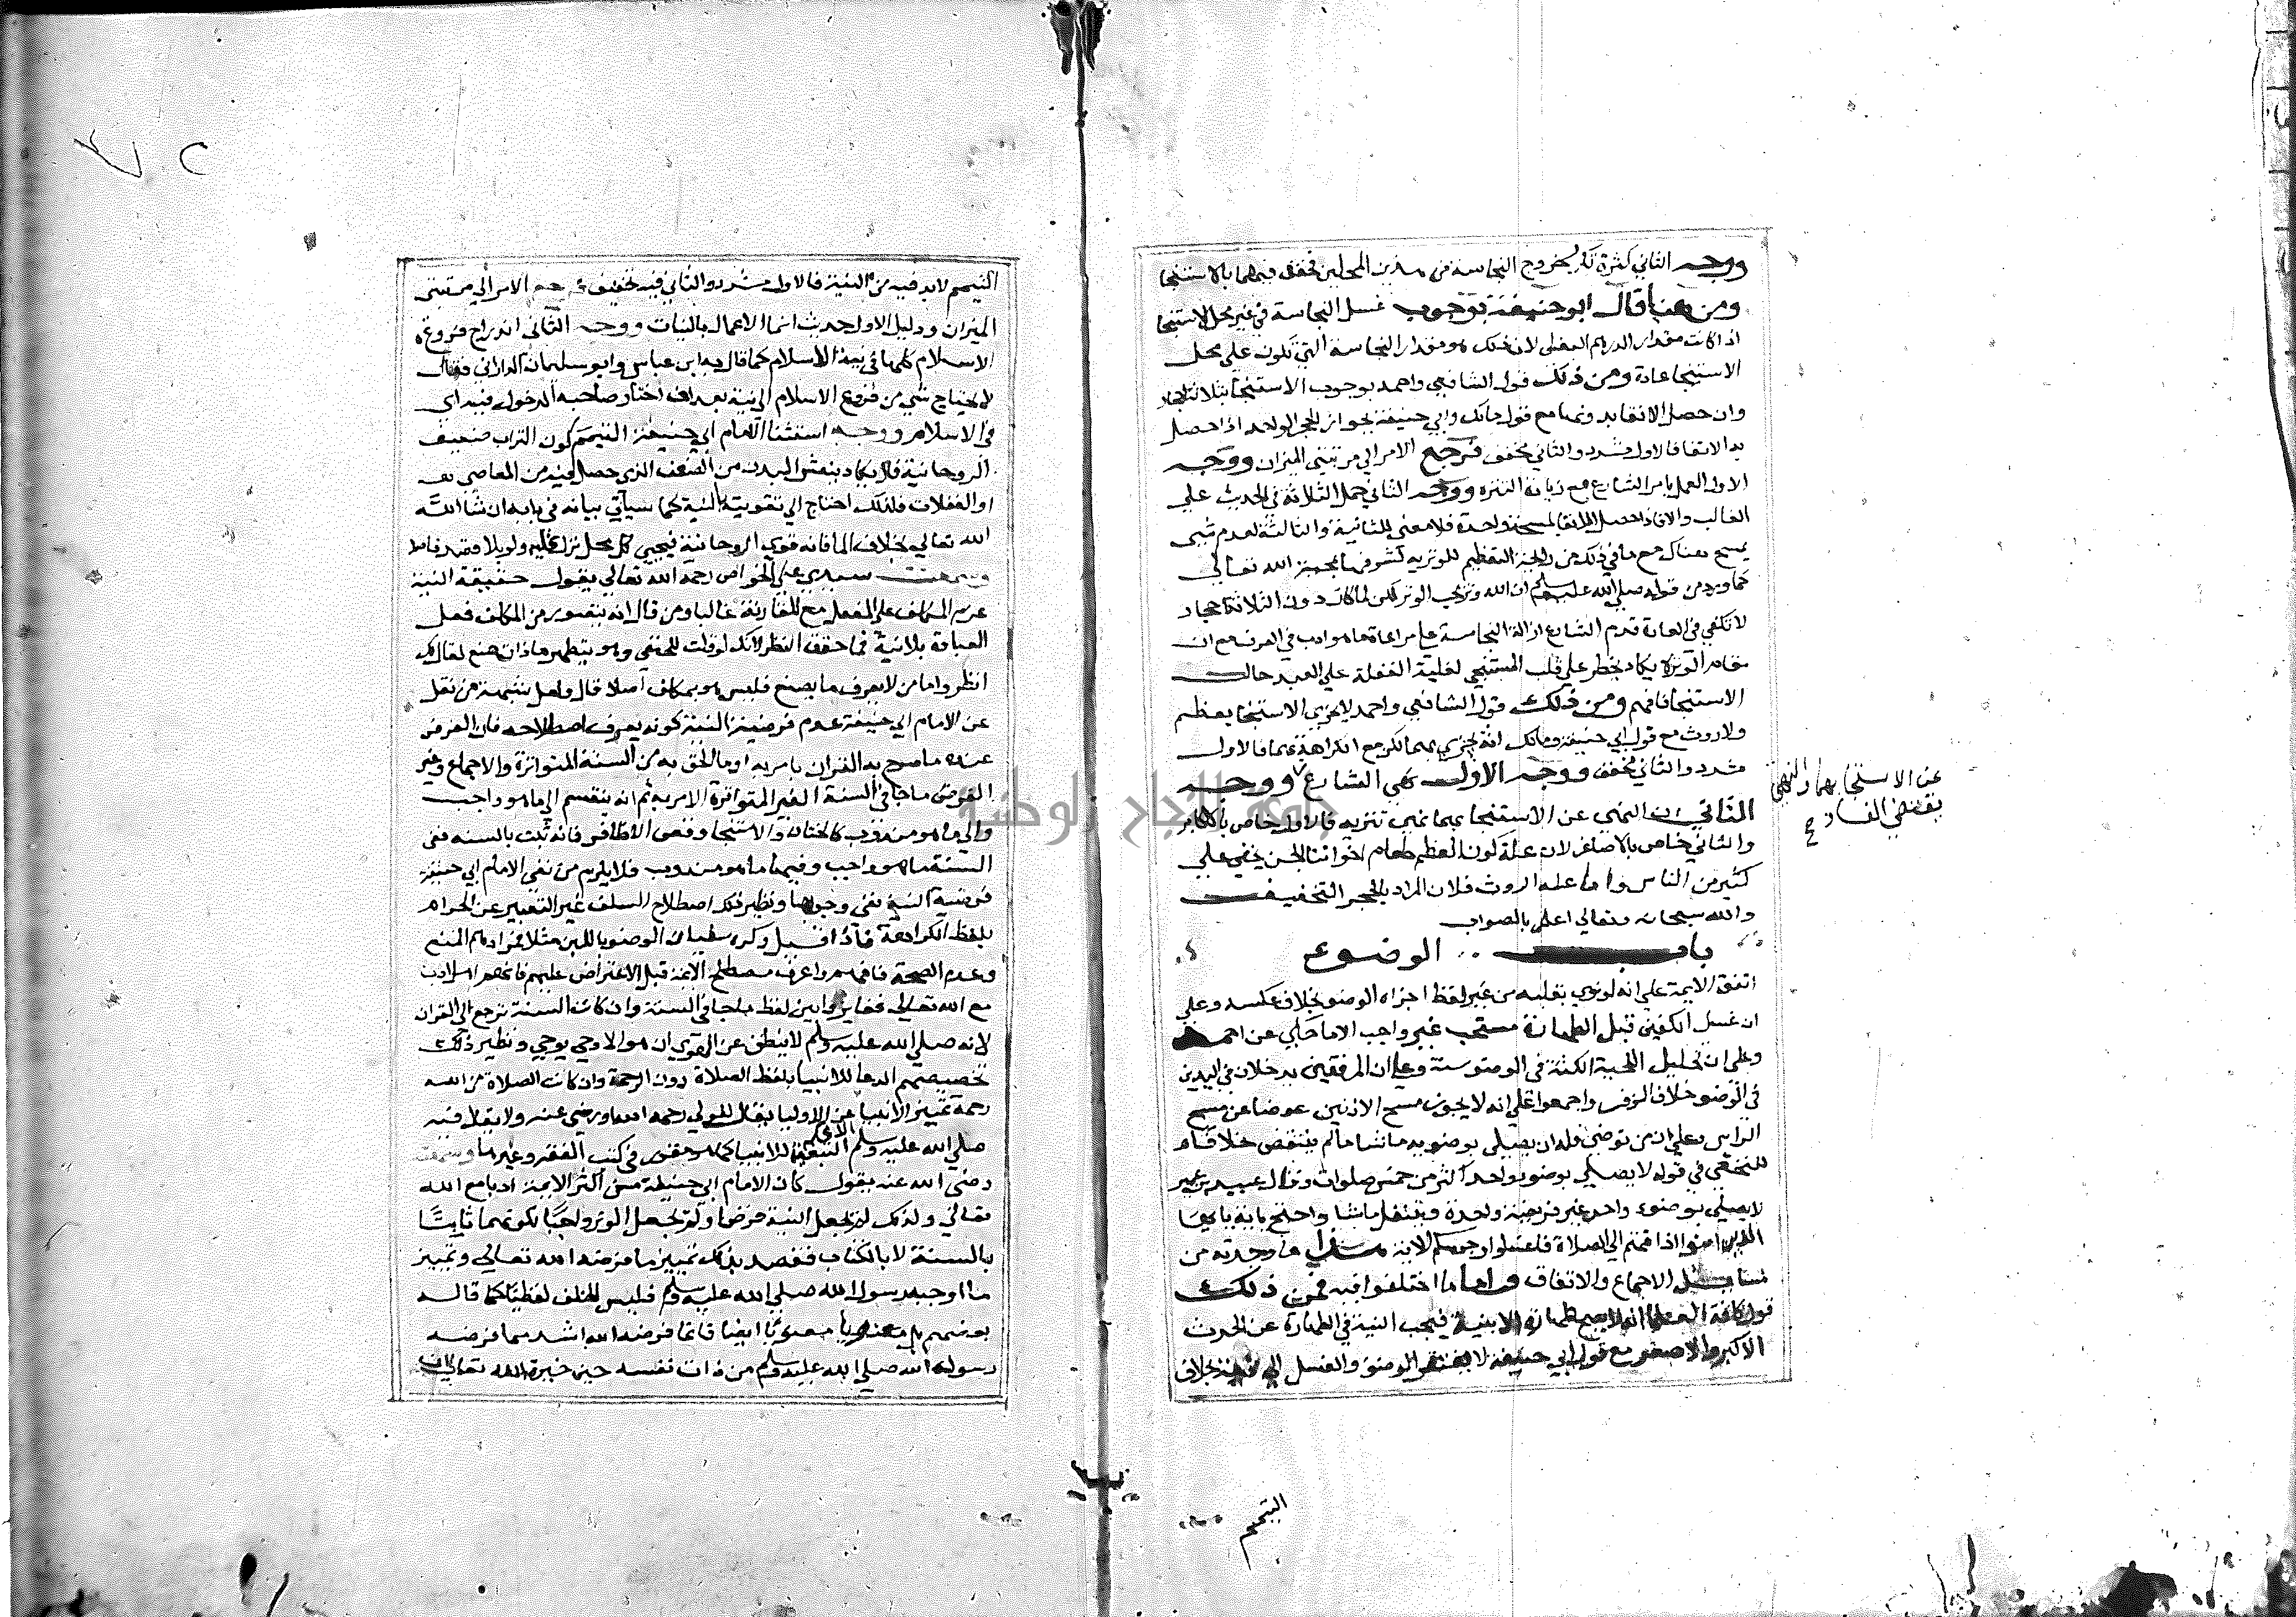 ووجه الثاني كثرة تكرر خروج النجاسة من هذين المحلين فخفف فيهما بالاستنجا
ومن هنا قال ابو حنيفة بوجوب غسل النجاسة في غير محل الاستنجا
اذا كانت مقدار الدرهم البغلي لان ذلك هو مقدار النجاسة التي تكون علي محل
الاستنجا عادة ومن ذلك قول الشافعي واحمد بوجوب الاستنجا بثلاثة احجار
وان حصل الانقا بدونها مع قول مالك وابي حنيفة بجواز الحجر الواحد اذا حصل
به الانقا فالاول مشدد والثاني مخفف فرجع الامر الي مرتبتي الميزان ووجه
الاول العمل بامر الشارع مع زيادة التنزه ووجه الثاني حمل الثلاثة في الحديث علي
الغالب والا فاذا حصل الانقا بمسحة واحدة فلا معني للثانية والثالثة لعدم شي
يمسح هناك مع ما في ذلك من رايحة التعظيم للوترية لشرفها بمحبة الله تعالي
كما ورد من قوله صلي الله عليه وسلم ان الله وتر يحب الوتر لكن لما كان دون الثلاثة احجار
لا تكفي في العادة قدم الشارع ازالة النجاسة علي مراعاة ما هو ادب في العرف مع ان
مقام الوترية لا يكاد يخطر علي قلب المستنجي لغلبة الغفلة علي العبد حال
الاستنجا فافهم ومن ذلك قول الشافعي واحمد لا يجزي الاستنجا بعظم
ولا روث مع قول ابي حنيفة ومالك انه يجزي بهما لكن مع الكراهة بهما فالاول
مشدد والثاني مخفف ووجه الاول نهي الشارع ووجه
الثاني ان النهي عن الاستنجا بهما نهي تنزيه فالاول خاص بالاكابر
والثاني خاص بالاصاغر لان علة كون العظم طعام اخواننا الجن يخفي علي
كثير من الناس واما علة الروث فلان المراد بالحجر التخفيف
والله سبحانه وتعالي اعلم بالصواب
باب الوضوء
اتفق الايمة علي انه لو نوي بقلبه من غير لفظ اجزاه الوضو بخلاف عكسه وعلي
ان غسل الكفين قبل الطهارة مستحب غير واجب الا ما حكي عن احمد
وعلي ان تخليل اللحية الكثة في الوضو سنة وعلي ان المرفقين يدخلان في اليدين
في الوضو خلافا لزفر واجمعوا علي انه لا يجوز مسح الاذنين عوضا عن مسح
الراس وعلي ان من توضي فله ان يصلي بوضويه ما شا ما لم ينتقض خلافا
للنخعي في قوله لا يصلي بوضو واحد اكثر من خمس صلوات وقال عبيد بن عمير
لا يصلي بوضوء واحد غير فريضة واحدة ويتنفل ما شا واحتج باية يا يها
الذين امنوا اذا قمتم الي الصلاة فاغسلوا وجوهكم الاية هذا ما وجدته من
مسايل الاجماع والاتفاق واما ما اختلفوا فيه فمن ذلك
قول كافة العلما انه لا يصح طهارة الا بنية فيجب النية في الطهارة عن الحدث
الاكبر والاصغر مع قول ابي حنيفة لا يفتقر الوضو والغسل الي نية بخلاف
عن الاستنجا بهما والنهي
يقتضي الفساد
التيمم
التيمم لابد فيه من النية فالاول مشدد والثاني فيه تخفيف فرجع الامر الي مرتبتي
الميزان ودليل الاول حديث انما الاعمال بالنيات ووجه الثاني اندراج فروع
الاسلام كلها في نية الاسلام كما قال به ابن عباس وابو سليمان الداراني فقال
لا يحتاج شي من فروع الاسلام الي نية بعد ان اختار صاحبه الدخول فيه اي
في الاسلام ووجه استثنا الامام ابي حنيفة التيمم كون التراب ضعيف
الروحانية فلا يكاد ينعش البدن من الضعف الذي حصل فيه من المعاصي
او الغفلات فلذلك احتاج الي تقويته بالنية كما سياتي بيانه في بابه ان شا الله
الله تعالي بخلاف الما فانه قوي الروحانية فيحيي كل محل نزل عليه ولو بلا قصد فاعل
وسمعت سيدي علي الخواص رحمه الله تعالي يقول حقيقة النية
عزم المكلف علي الفعل مع المقارنة غالبا ومن قال انه يتصور من المكلف فعل
العبادة بلا نية فما حقق النظر لانك لو قلت للحنفي وهو يتطهر ماذا تصنع لقال لك
اتطهر واما من لا يعرف ما يصنع فليس هو بمكلف اصلا قال ولعل شبهة من نقل
عن الامام ابي حنيفة عدم فرضية النية كونه يعرف اصطلاحه فان الفرض
عنده ما صرح به القران بامر به او ما الحق به من السنة المتواترة والاجماع وغير
الفرض ما جا في السنة الغير المتواترة الامر به ثم انه ينقسم الي ما هو واجب
والي ما هو مندوب كالختان والاستنجا وقص الاظافر فانه ثبت بالسنة ففي
السنة ما هو واجب وفيها ما هو مندوب فلا يلزم من نفي الامام ابي حنيفة
فرضية النية نفي وجوبها ونظير ذلك اصطلاح السلف غير التعبير عن الحرام
بلفظ الكراهة فاذا قيل وكره سفيان الوضو باللبن مثلا فمراد هم المنع
وعدم الصحة فافهم واعرف مصطلح الايمة قبل الاعتراض عليهم
مع الله تعالي فغايروا بين لفظ ما جا في السنة وان كانت السنة ترجع الي القران
لانه صلي الله عليه وسلم لا ينطق عن الهوي ان هو الا وحي يوحي ونظير ذلك
تخصيصهم الدعا للانبيا بلفظ الصلاة دون الرحمة وان كانت الصلاة من الله
رحمة تمييز الانبيا عن الاوليا فيقال للولي رحمه الله او رضي عنه ولا يقال فيه
صلي الله عليه وسلم للانبيا كما هو مقرر في كتب الفقه وغيرها وسمعت
رضي الله عنه يقول كان الامام ابي حنيفة من اكثر الايمة ادبا مع الله
تعالي ولذلك لم يجعل النية فرضا ولم يجعل الوتر واجبا لكونهما ثابتا
بالسنة لا بالكتاب فقصد بذلك تمييز ما فرضه الله تعالي وتمييز
ما اوجبه رسول الله صلي الله عليه وسلم فليس الخلف لفظيا كما قاله
بعضهم بل معنويا ايضا فان ما فرضه الله اشد مما فرضه
رسوله الله صلي الله عليه وسلم من ذات نفسه حين خيره الله تعالي